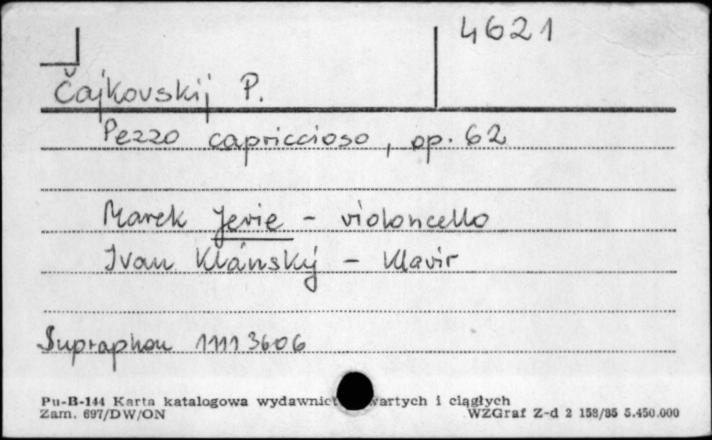 4621
Čajkovskij P.
Pezzo capriccioso, op. 62
Marek Jerie - violoncello
Ivan Klánský - klavír
Supraphon 1111 3606
Pu-B-144 Karta katalogowa wydawnict wartych i ciągłych
Zam. 697/DW/ON WZGraf Z-d 2 158/85 5.450.000